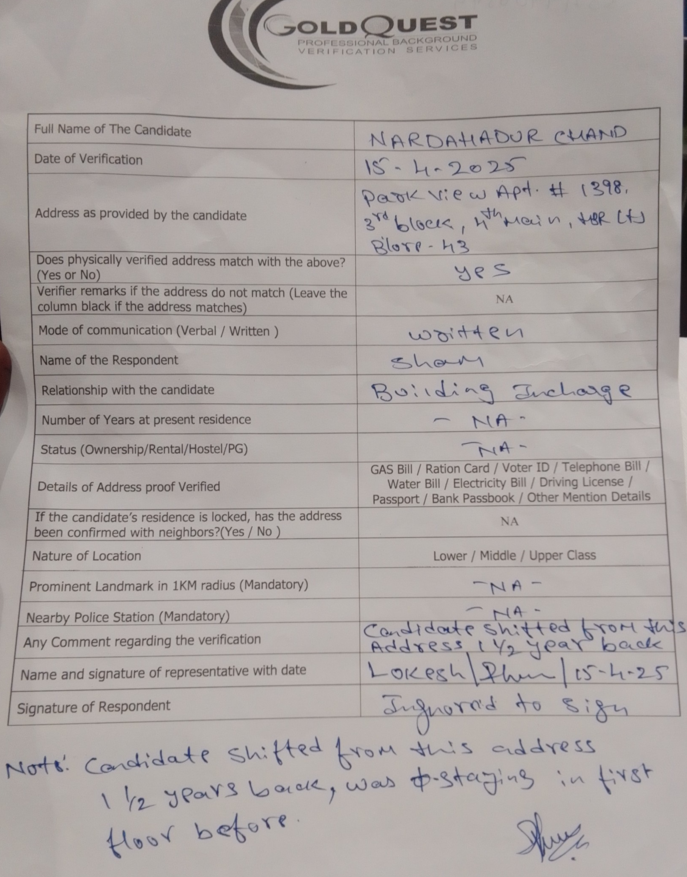 GOLDQUEST
PROFESSIONAL BACKGROUND
VERIFICATION SERVICES
Full Name of The Candidate NARDAHADUR CHAND
Date of Verification 15-4-2025
Address as provided by the candidate Park View Apt. # 1398,
3rd block, 4th Main, HBR
Blore-43
Does physically verified address match with the above?
(Yes or No) yes
Verifier remarks if the address do not match (Leave the
column black if the address matches) NA
Mode of communication (Verbal / Written ) written
Name of the Respondent Sham
Relationship with the candidate Building Incharge
Number of Years at present residence - NA -
Status (Ownership/Rental/Hostel/PG) - NA -
Details of Address proof Verified GAS Bill / Ration Card / Voter ID / Telephone Bill /
Water Bill / Electricity Bill / Driving License /
Passport / Bank Passbook / Other Mention Details
If the candidate's residence is locked, has the address
been confirmed with neighbors?(Yes / No ) NA
Nature of Location Lower / Middle / Upper Class
Prominent Landmark in 1KM radius (Mandatory) - NA -
Nearby Police Station (Mandatory) - NA -
Any Comment regarding the verification Candidate shifted from this
Address, 1 1/2 year back
Name and signature of representative with date Lokesh / / 15-4-25
Signature of Respondent Ingnorrd to sign
Note: Candidate shifted from this address
1 1/2 years back, was staying in first
floor before.